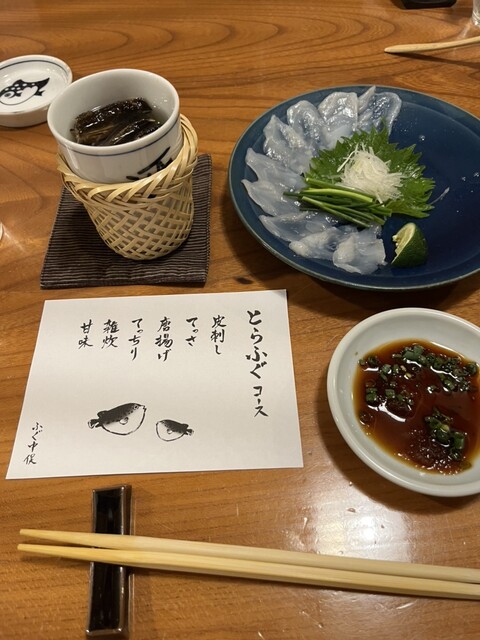 とらふぐコース
皮刺し
てっさ
唐揚げ
てっちり
雑炊
甘味